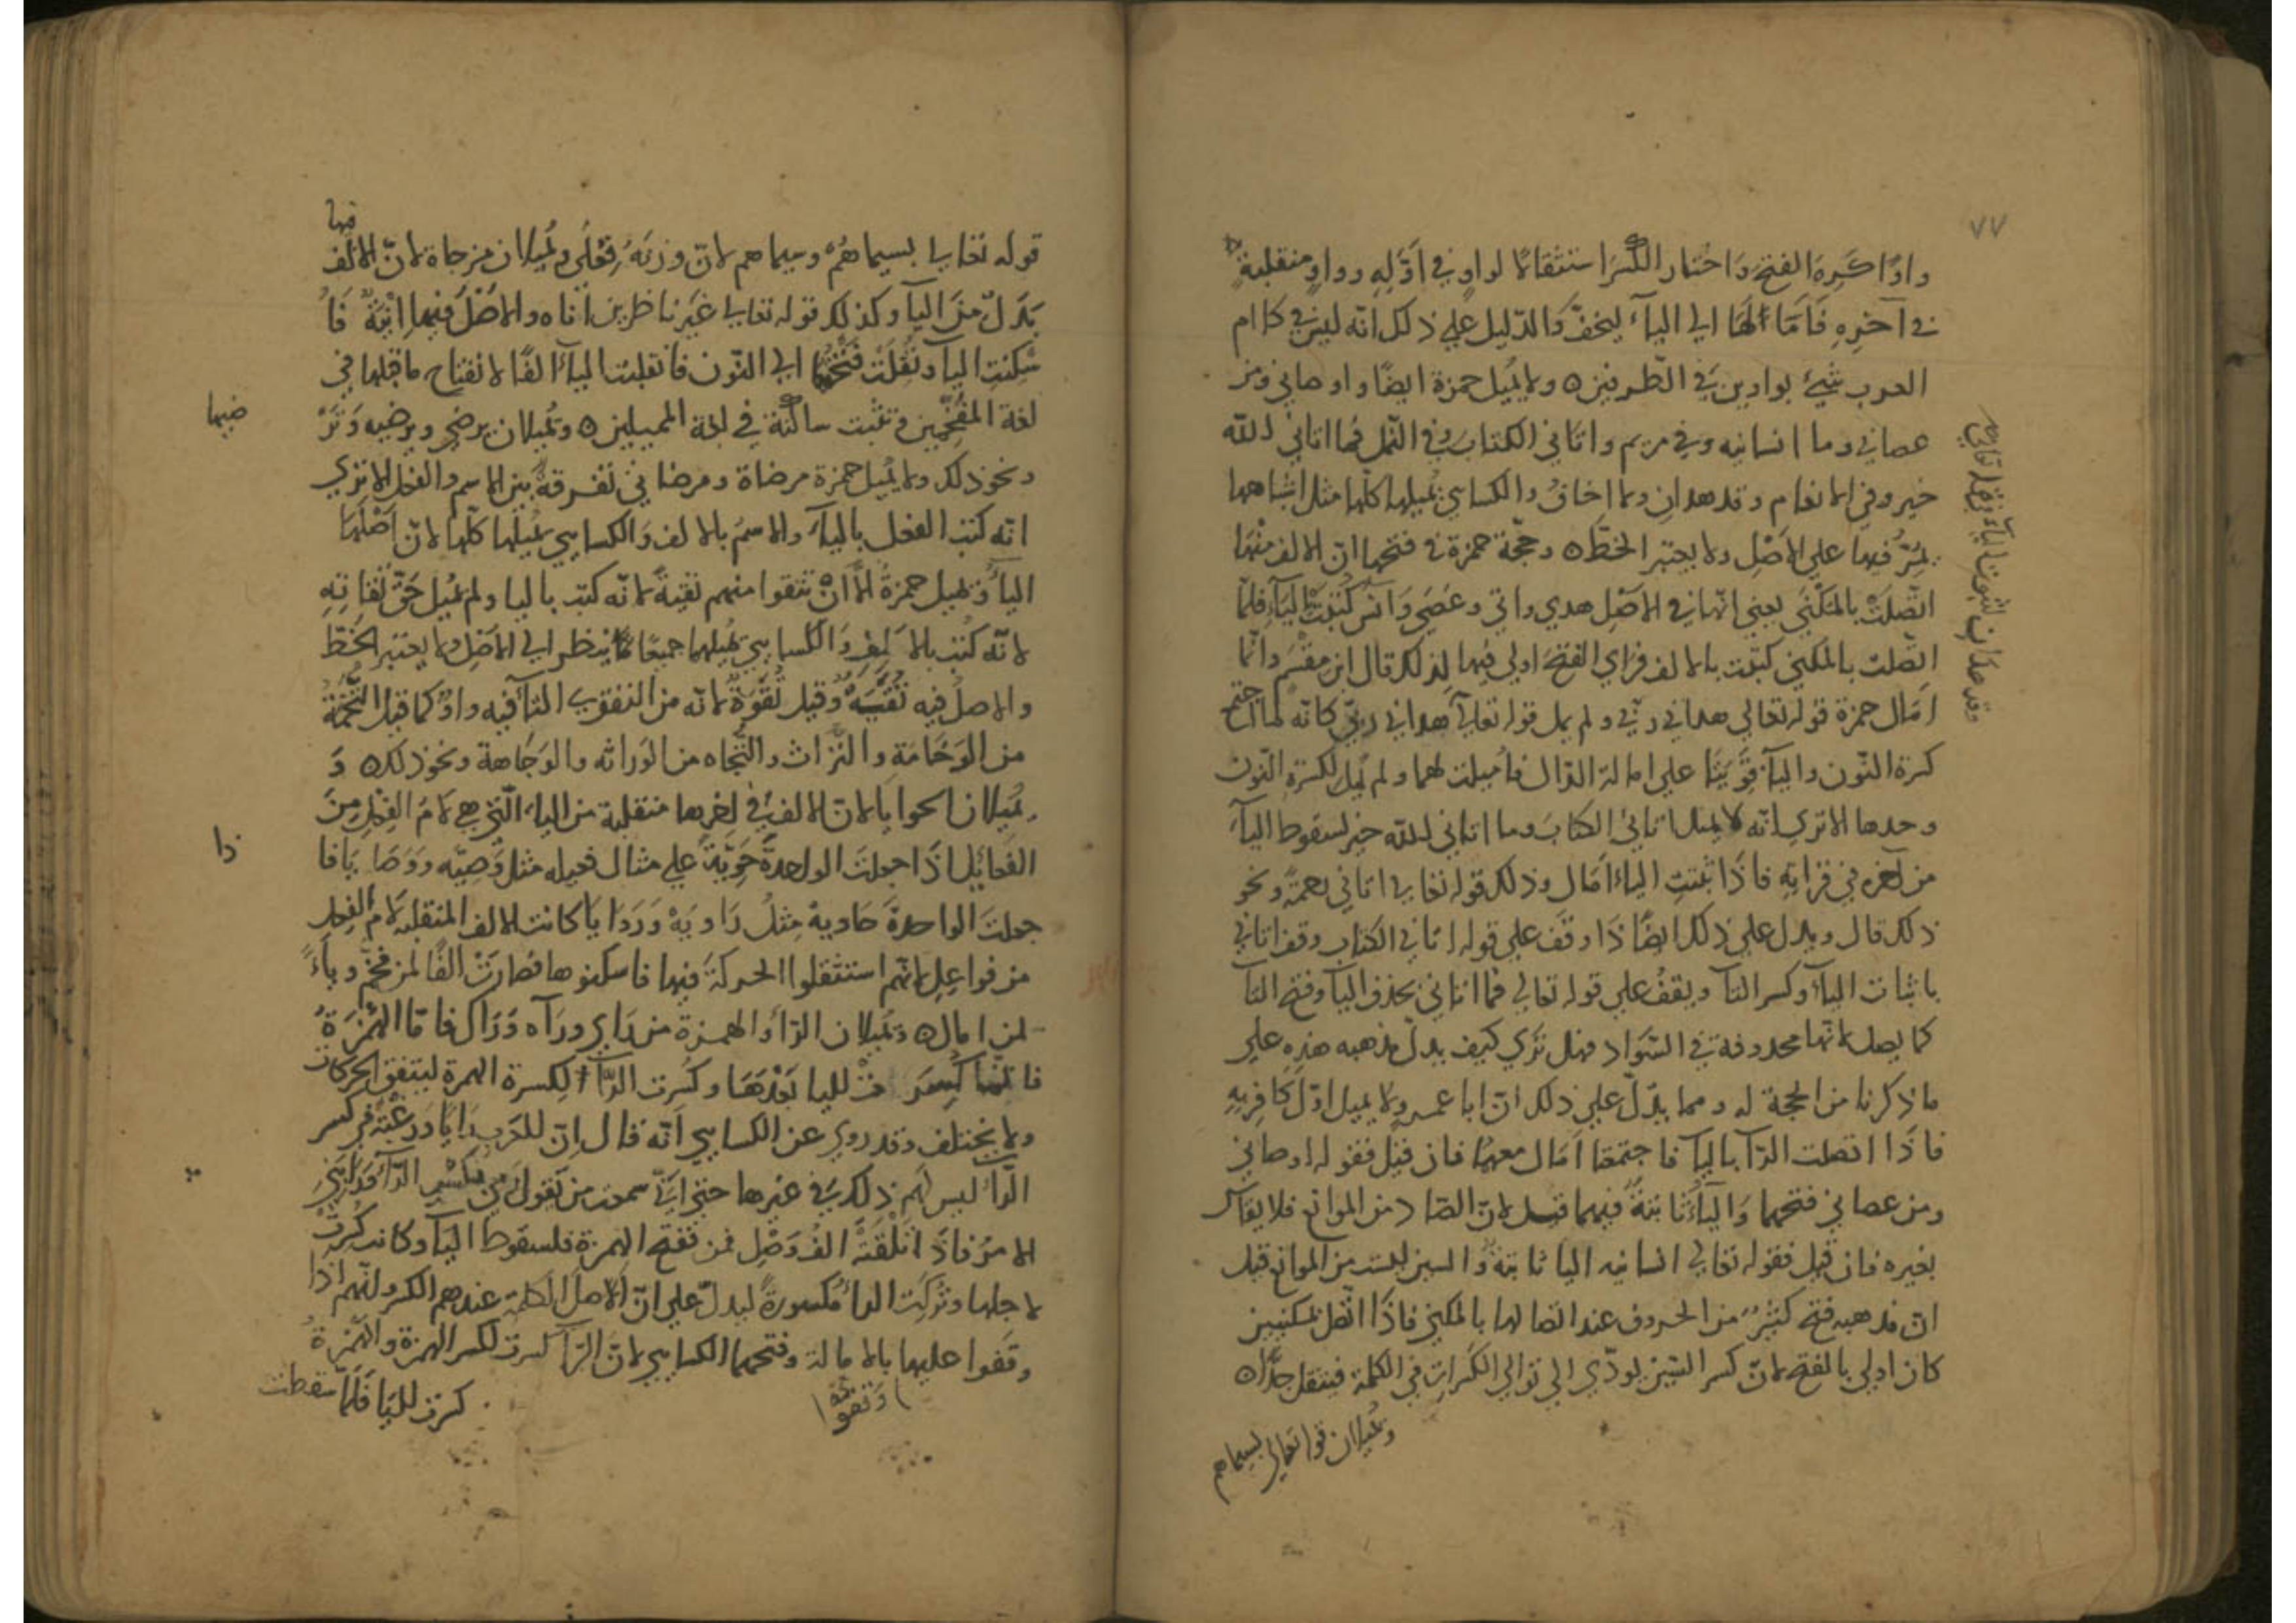 ٧٧
واوًا كَرِهَ الفتحَ وَاختار الكَسرَ استثقالًا لواوٍ في اَوّلِهِ وواوٍ منقلبةٍ
في آخرِهِ فَاَمَالَهَا الي اليآءِ ليخفَّ وَالدّليل علي ذلك انّه ليس في كلام
العرب شيءٌ بواوين في الطّرفين ٥ ولا يُميل حمزة ايضًا واوصاني ومن
عصاني وما انسانيه وفي مريم واتاني الكتابَ وفي النّمل فما اتاني الله
خير وفي الانعام وقد هدانِ ولا اخافُ والكسايي يُميلها كلّها مثل اشباهها
يمرُّ فيها علي الاَصْلِ ولا يعتبر الخطَّ ٥ وحجّة حمزة في فتحها انّ الالف منها
اتّصلَتْ بالمَكْنيّ يعني انّها في الاَصْلِ هدي واتي وعَصَي وَانسي كُتبَتْ باليَآءِ فلمّا
اتّصلت بالمكني كتبت بالالف فرَاي الفتحَ اولي فيها لذلك قال ابن مقسَم وانّما
اَمَال حمزة قوله تعالي هداني ربّي ولم يمل قوله تعالي هداني ربّي كانّه لما اجتمع
كسرة النّون واليآء قَوَّيَتَا علي امالة الدّال فاُميلت لهما ولم يُمِل لكسرةِ النّون
وحدها الا تري انّه لا يميل اتاني الكتابَ وما اتاني الله خير لسقوط اليآءِ
من آخره في قراءتِهِ فاذَا ثبتتِ الياءُ اَمَال وذلك قوله تعالي اتاني رحمةً ونحو
ذلك قال ويدل علي ذلك ايضًا اذَا وقفَ علي قوله اتاني الكتاب وقف اتاني
باثبات اليآءِ وكسر التآء ويقفُ علي قوله تعالي فما اتاني بحذف اليآء وفتح التآء
كما يصل لانّها محذوفة في السَّواد فهل تَرَي كيف يدلّ مذهبه هذِهِ علي
ما ذكرنا من الحجة له ومما يدّلّ علي ذلك انّ ابا عمرو لا يميل اوّلَ كَافِرٍبِهِ
فاذَا اتصلت الرّآء باليآء فاجتمعَا اَمَال معهمَا فان قيل فقوله اوصاني
ومن عصاني فتحهما وَاليآءُ ثابتةٌ فيهما قيل لانّ الصّاد من الموانع فلا يقاس
بغيره فان قيل فقوله تعالي انسانيه اليا ثابتةٌ والسين ليست من الموانع قيل
انّ مذهبه فتح كثيرٌ من الحروف عند اتصالها بالمكني فاذَا اتّصل بمكنيين
كان اولي بالفتح لانّ كسر السّين يودّي الي توالي الكَسَراتِ في الكلمة فيثقل جدًّا ٥
ويُميلان قوله تعالي بسيماهم
وقد هدانِ لثبوت الياء في قوله تعالي
قوله تعالي بسيماهُمْ وسيماهم لانّ وزنَهُ فِعْلَي ويُميلان مزجاة لانّ الالف
فيها
بَدَلٌ منَ اليآءِ وكذلك قوله تعالي غَيرَ ناظرين اناه والاَصْلُ فيها اِنْيَةٌ فَاُ
سْكِنت اليآء ونُقِلَتْ فَتْحَتُهَا الي النّون فانقلبت اليآءُ الفًا لانفتاح ما قبلها في
لغة المفَخِّمِين وتثبت ساكنة في لغة المميلين ٥ وتُميلان يرضي ويرضيه وَتَرْ
ضيها
ونحو ذلك ولا يُميل حمزة مرضاة ومرضاتي تفرقةً بين الاسم والفعل الا تري
انّه كتب الفعل باليآءِ والاسمُ بالالف وَالكسايي يميلها كلّها لانّ اَصْلَهَا
اليآءُ ويميل حمزةُ الاَّ اَنْ تتقوا منهم تقيةً لانّه كتب باليا ولم يُميل حَقَّ تُقَاتِهِ
لانّه كُتب بالاَلِفِ وَالكسايي يميلهما جميعًا لمَّا ينظر الي الاَصْلِ ولا يعتبر الخَطَّ
والاصلُ فيه تُقَيَةٌ وقيل تُقَوَةٌ لانّه من التقوي التآءُ فيه واوٌ كما قيل التُّخَمَةُ
من الوَخَامَةِ والتُراث والتُّجاه من الوراثه والوَجَاهة ونحو ذلك ٥ وَ
يُميلان الحوايا لانّ الالف في اخرها منقلبة من الياءِ الّتي هي لاَمُ الفِعْلِ مِنَ
الفَعائِلِ اذَا جعلتَ الواحدةَ حَوِيّةً علي مثال فعيله مثل وَصِيّه وَوَصَايَا فا
ذا
جعلتَ الواحدةَ حَاوِيةً مِثلُ رَاوِيَةٍ وَرَوَايَا كانت الالف المنقلبه لاَمُ الفعل
من فواعِلِ لانّهم استثقلوا الحركةَ فيها فاسكنوها فصارَتْ الفًا لمن فخّم وياءً
لمن امال ٥ وتُميلان الرّآءَ والهمزةَ من رَاي ورآه وَرَاك فامّا الهَمْزَةُ
فاِنّها كُسِرَتْ لليا بَعْدَهَا وكُسرت الرّآءُ لِكسرة الهمزة ليتفق الحركات
ولا يختلف وقد روي عن الكسايي اَنّه قال اِنّ للعَرَبِ رايًا ورغبةً في كسر
الرّآءِ ليس لَهُم ذلك في غيرها حتّي انّي سمعت من يقول
الامرُ فاذَا لَقِيَتْهُ الفُ وَصْلٍ فمن فتح الهمزة فلسقوط اليآء وكانت كُسِرَتْ
لاجلها وتُركَت الراءُ مكسورةً ليدلّ علي انّ الاصل الكلمة عندهم الكسر ولانّهم اذا
وقفوا عليها بالامالة وفتحها الكسايي لانّ الرّآءَ كسرت لكسر الهمزة والهَمْزةُ
كسرت لليَا فَلَمّا سقطت